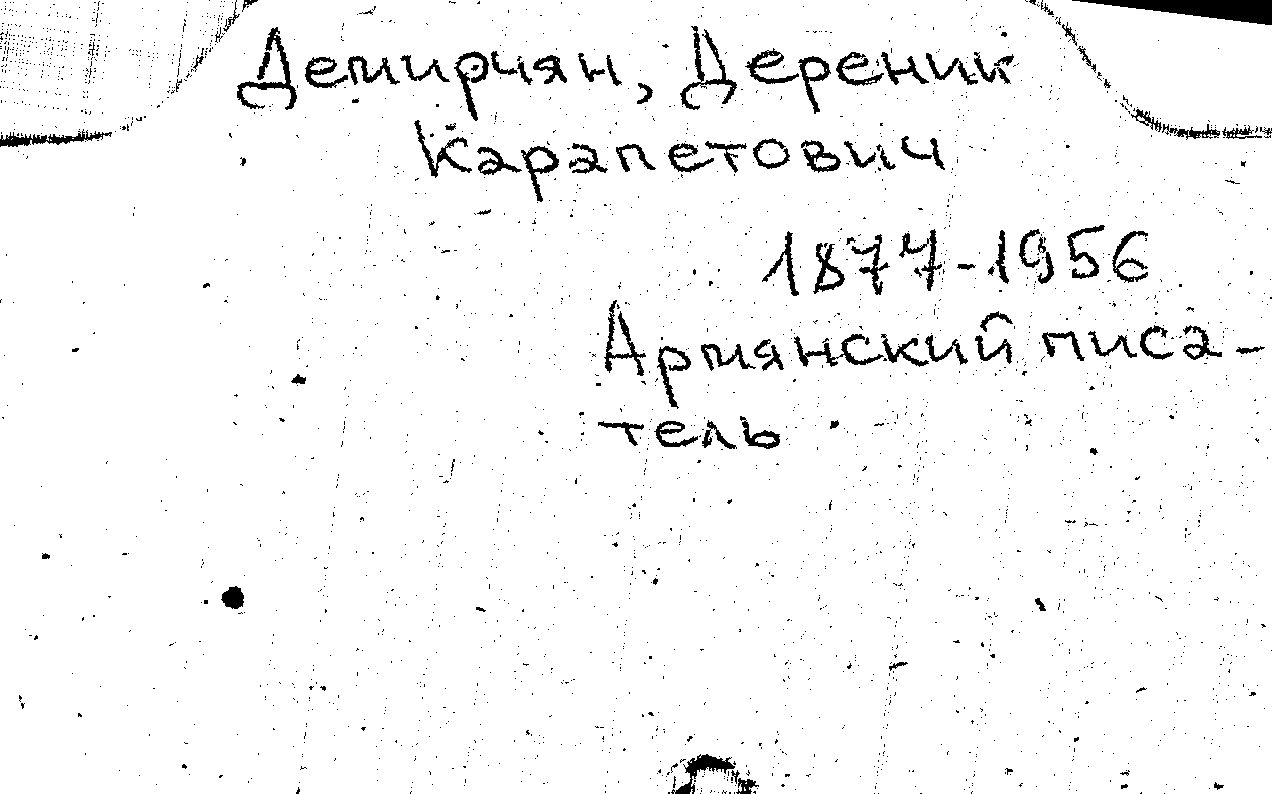 Демирчян, Дереник
Карапетович
1877-1956
Армянский писа-
тель